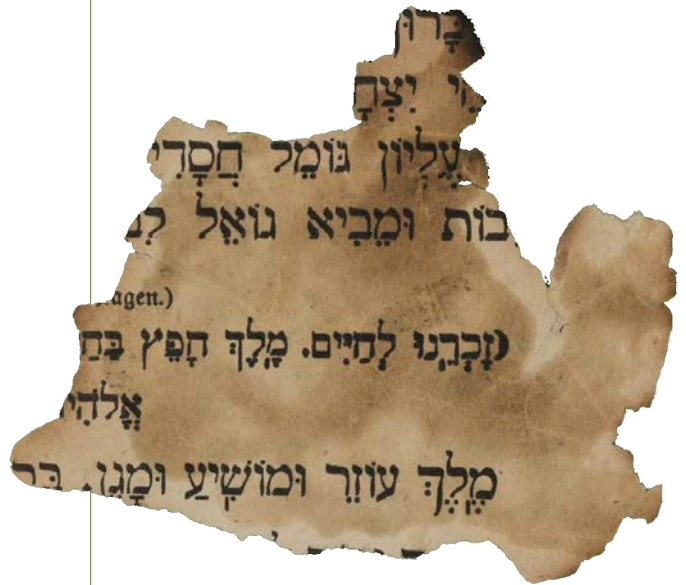 בָּרוּ
יִצְחָ
עֶלְיוֹן גּוֹמֵל חֲסָדִי
בוֹת וּמֵבִיא גוֹאֵל לִב
agen.)
(זָכְרֵנוּ לְחַיִּים. מֶלֶךְ חָפֵץ בַּחַ
אֱלֹהִי
מֶלֶךְ עוֹזֵר וּמוֹשִׁיעַ וּמָגֵן. בָּר